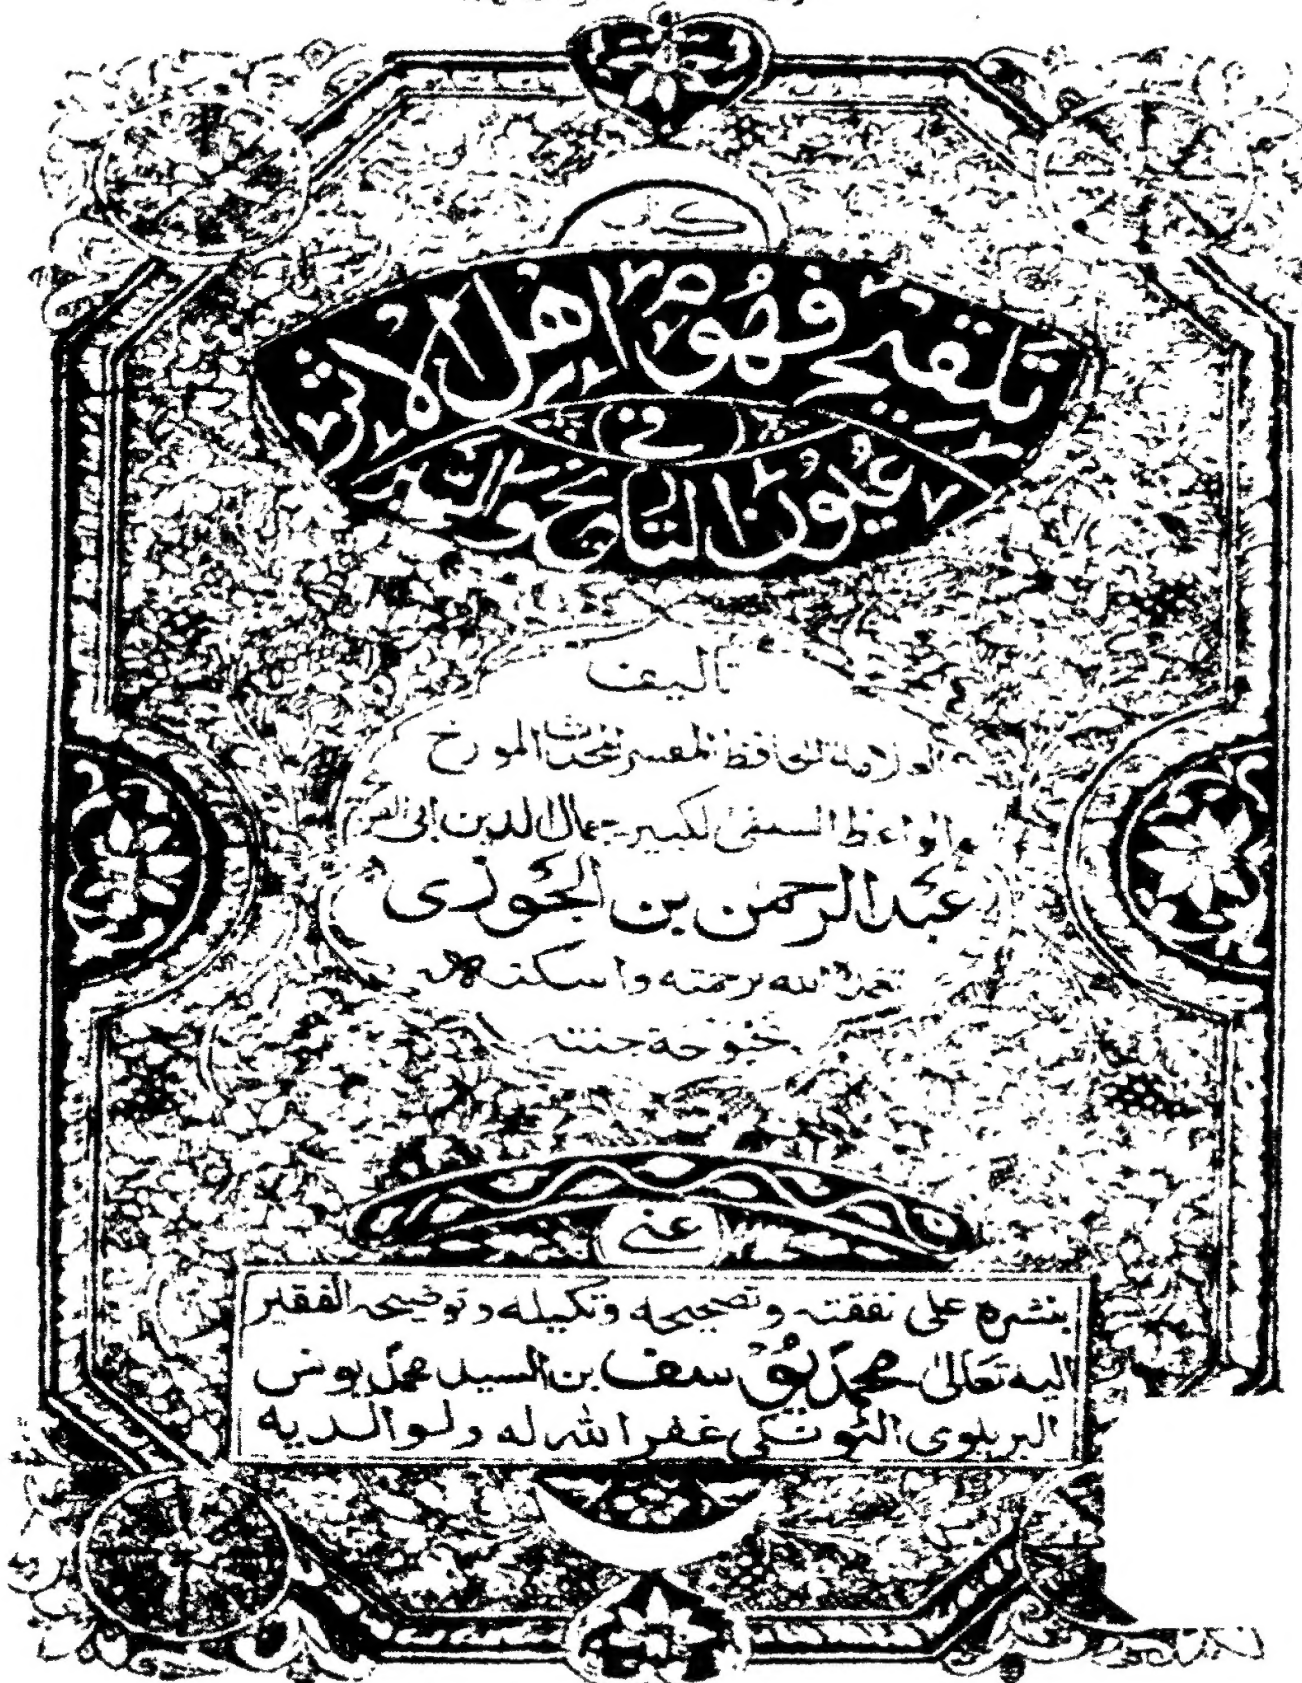 كتاب
تلقيح فهوم اهل الاثر
في
عيون التاريخ والسير
تاليف
العلامة الحافظ المفسر المحدث المورخ
والواعظ السلفى الكبير جمال الدين ابى الفرج
عبد الرحمن بن الجوزى
تغمده الله برحمته واسكنه
بحبوحة جنته
عنى
بنشره على نفقته وتصحيحه وتكميله وتوضيحه الفقير
اليه تعالى محمد يوسف بن السيد محمد يونس
البريلوى التونكى غفر الله له ولوالديه